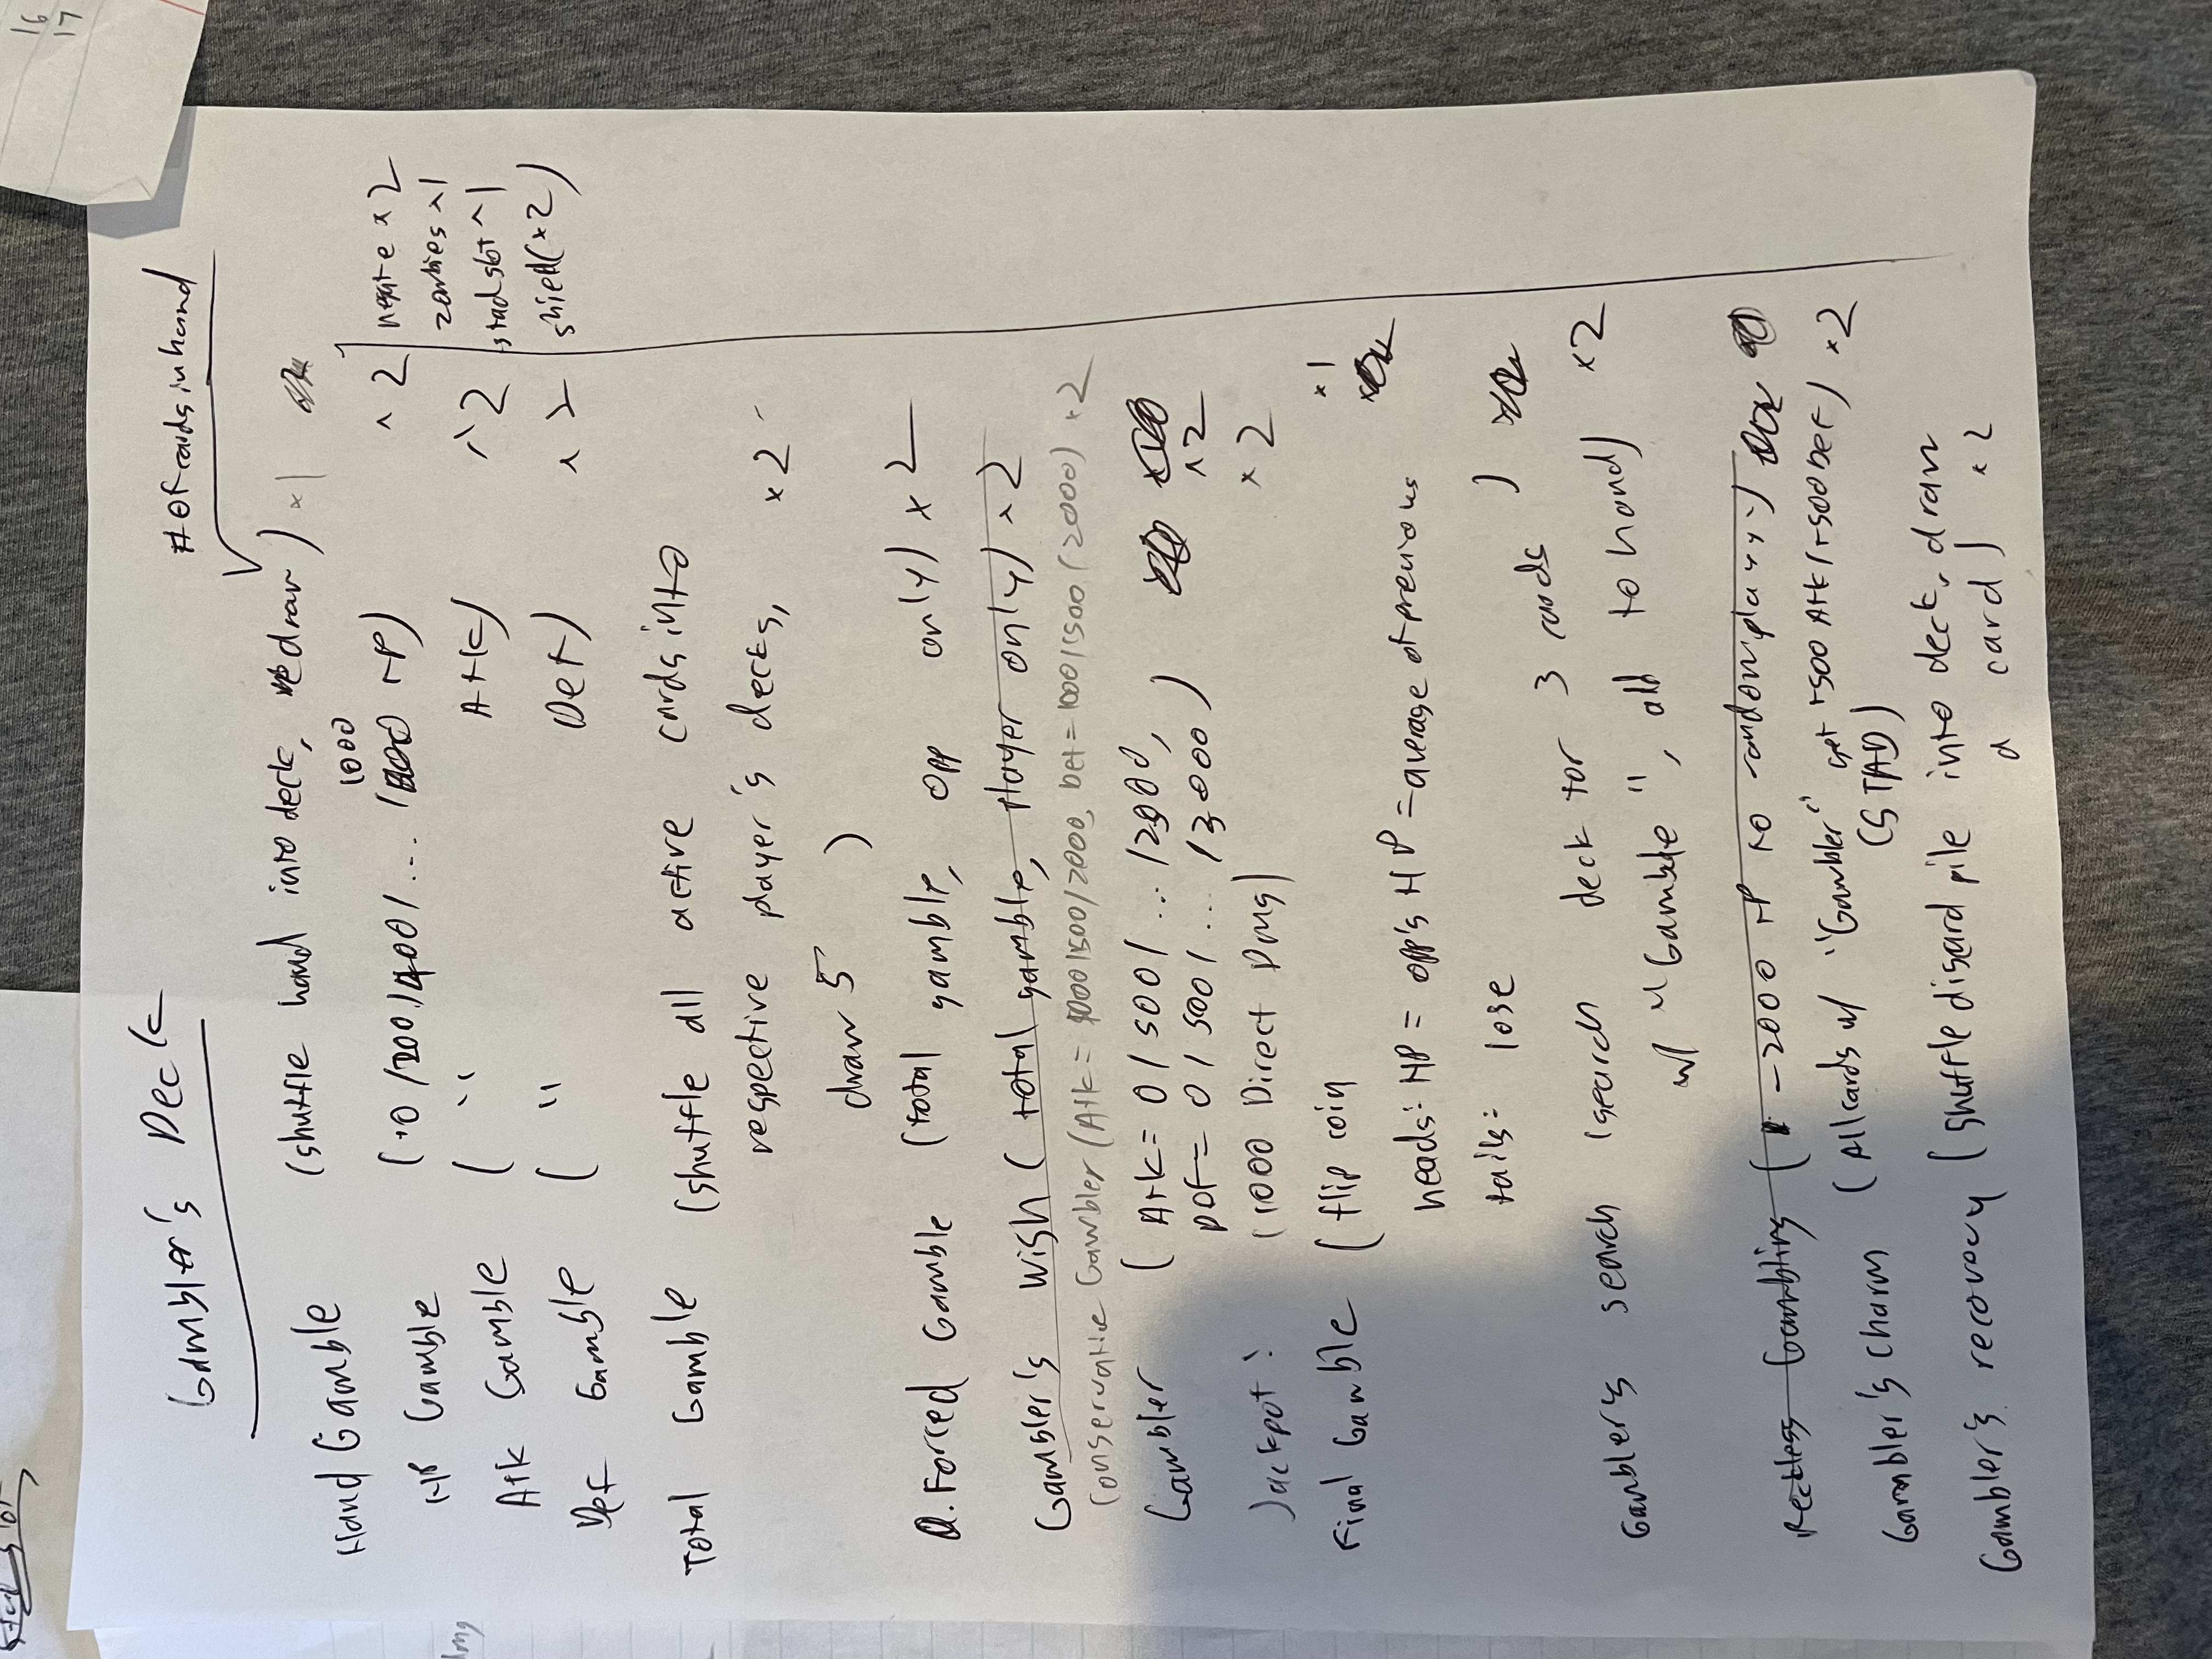 16
17
Gambler's Deck
# of cards in hand
Hand Gamble (shuffle hand into deck, redraw) x1
1000
HP Gamble (+0/200/400/... HP) x2
Atk Gamble ( " Atk) x2
Def Gamble ( " Def) x2
negate x2
zombies x1
stad slot x1
shield (x2)
Total Gamble (shuffle all active cards into
respective player's decks, x2
draw 5 )
Q. Forced Gamble (total gamble, opp only) x2
Gambler's Wish (total gamble, player only) x2
Conservative Gambler (Atk = 1000/1500/2000, Def = 1000/1500/2000) x2
Gambler (Atk = 0/500/... /3000,
Def = 0/500/... /3000) x2
Jackpot! (1000 Direct Dmg) x2
Final Gamble (flip coin x1
heads: HP = opp's HP = average of previous
tails: lose )
Gambler's search (search deck for 3 cards
w/ "Gamble", add to hand) x2
Reckless Gambling ( -2000 HP to random player)
Gambler's Charm (All cards w/ "Gambler" get +500 Atk/+500 Def) x2
(STAD)
Gambler's recovery (shuffle discard pile into deck, draw
a card) x2